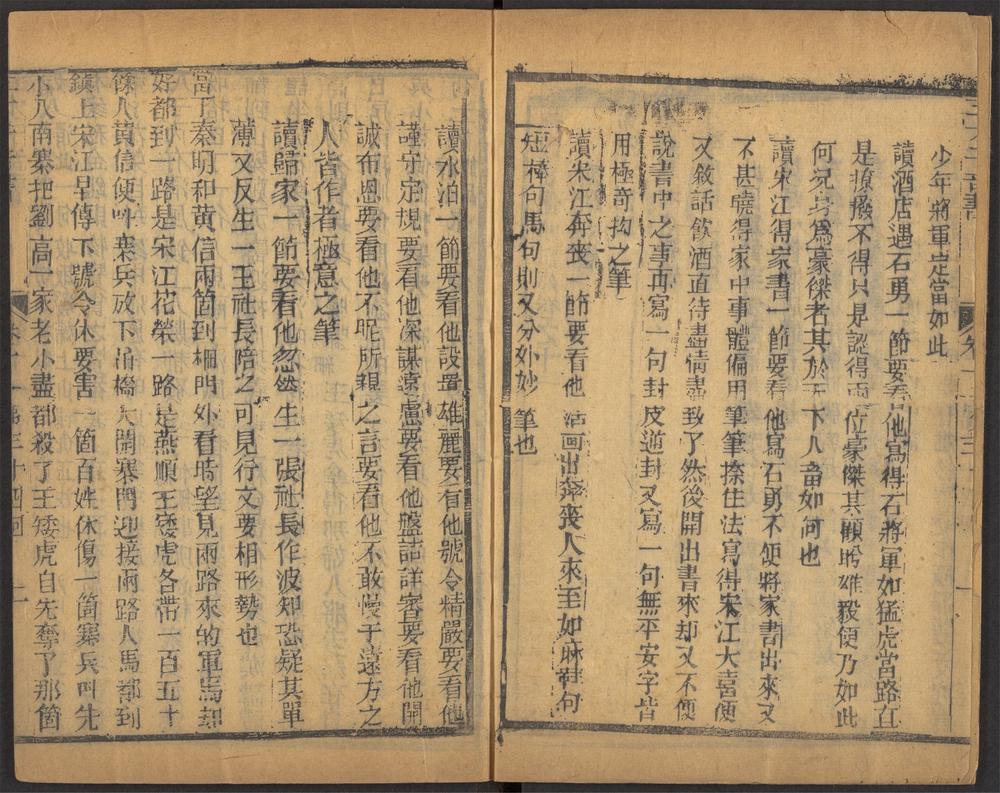 少年將軍定當如此
讀酒店遇石勇一節要看他寫得石將軍如猛虎當路直
是撩撥不得只是認得兩位豪傑其顧盼雄毅便乃如此
何況身為豪傑者其於天下人當如何也
讀宋江得家書一節要看他寫石勇不便將家書出來又
不甚曉得家中事體偏用筆筆捺住法寫得宋江大喜便
又敘話飲酒直待盡情盡致了然後開出書來却又不便
說書中之事再寫一句封皮逆封又寫一句無平安字皆
用極奇拗之筆
讀宋江奔喪一節要看他活画出奔喪人來至如麻鞋句
短棒句馬句則又分外妙筆也
讀水泊一節要看他設置雄麗要看他號令精嚴要看他
謹守定規要看他深謀遠慮要看他盤詰詳審要看他開
誠布恩要看他不昵所親之言要看他不敢慢于遠方之
人皆作者極意之筆
讀歸家一節要看他忽然生一張社長作波却恐疑其單
薄又反生一王社長陪之可見行文要相形勢也
當下秦明和黃信兩箇到柵門外看時望見兩路來的軍馬却
好都到一路是宋江花榮一路是燕順王矮虎各帶一百五十
餘人黃信便叫寨兵放下吊橋大開寨門迎接兩路人馬都到
鎮上宋江早傳下號令休要害一箇百姓休傷一箇寨兵叫先
小入南寨把劉高一家老小盡都殺了王矮虎自先奪了那箇